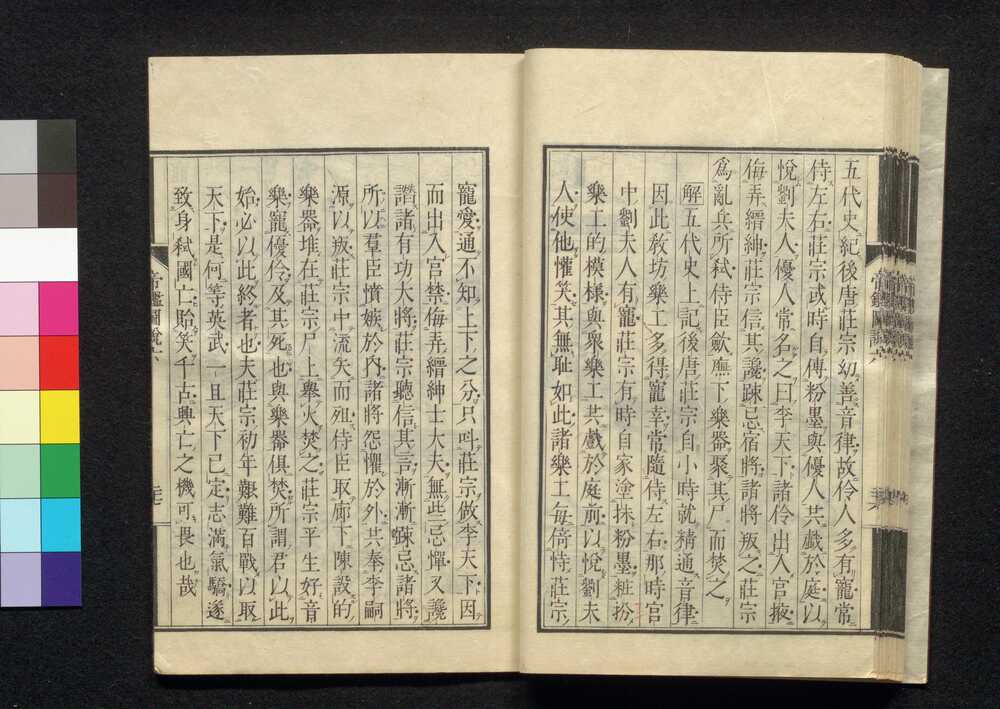 五代史紀後唐莊宗幼善音律故伶人多有寵常
侍左右莊宗或時自傅粉墨與優人共戲於庭以
悅劉夫人優人常名之曰李天下諸伶出入宮掖
侮弄縉紳莊宗信其讒踈忌宿將諸將叛之莊宗
爲亂兵所弒侍臣歛廡下樂器聚其尸而焚之
解五代史上記後唐莊宗自小時就精通音律
因此敎坊樂工多得寵幸常隨侍左右那時宮
中劉夫人有寵莊宗有時自家塗抹粉墨粧扮
樂工的模樣與衆樂工共戲於庭前以悅劉夫
人使他懽笑其無耻如此諸樂工每倚恃莊宗
寵愛通不知上下之分只呌莊宗做李天下因
而出入宮禁侮弄縉紳士大夫無些忌憚又讒
譖諸有功大將莊宗聽信其言漸漸踈忌諸將
所以羣臣憤嫉於內諸將怨懼於外共奉李嗣
源以叛莊宗中流矢而殂侍臣取廊下陳設的
樂器堆在莊宗尸上舉火焚之莊宗平生好音
樂寵優伶及其死也與樂器俱焚所謂君以此
始必以此終者也夫莊宗初年艱難百戰以取
天下是何等英武一旦天下已定志滿氣驕遂
致身弒國亡貽笑千古興亡之機可畏也哉
帝鑑圖說六